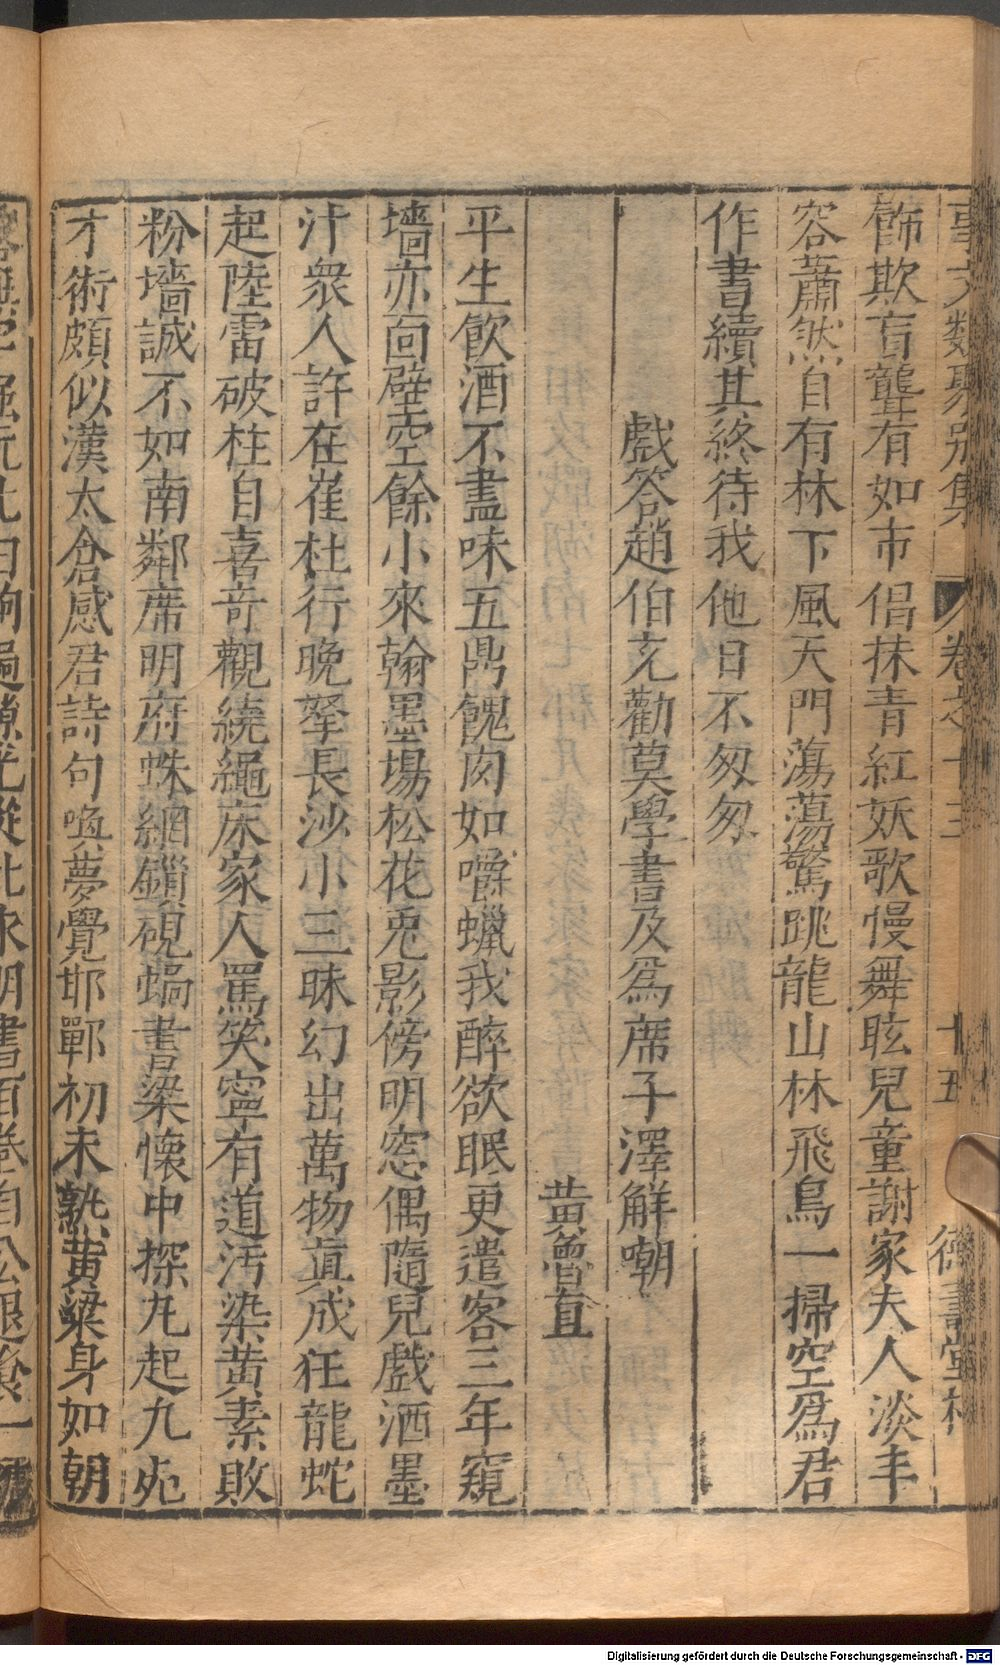 事文類聚別集 卷之十三 十五 德壽堂梓
飾欺盲聾有如市倡抹青紅妖歌慢舞眩兒童謝家夫人淡丰
容蕭然自有林下風天門蕩蕩驚跳龍山林飛鳥一掃空爲君
作書續其終待我他日不匆匆
戲答趙伯充勸莫學書及爲席子澤解嘲
黃魯直
平生飲酒不盡味五鼎餽肉如嚼蠟我醉欲眠更遣客三年窺
墻亦面壁空餘小來翰墨場松花兎影傍明窓偶隨兒戲洒墨
汁衆人許在崔杜行晚學長沙小三昧幻出萬物眞成狂龍蛇
起陸雷破柱自喜竒觀繞繩床家人罵笑寧有道汚染黃素敗
粉墻誠不如南鄰席明府蛛網鎖硯蝸書梁懷中探丸起九死
才術頗似漢太倉感君詩句喚夢覺邯鄲初未熟黃粱身如朝
Digitalisierung gefördert durch die Deutsche Forschungsgemeinschaft - DFG